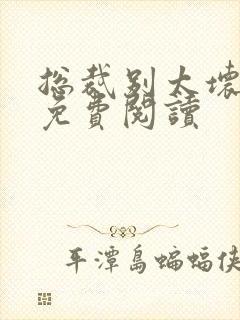 总裁别太壞
免費閱讀
平潭島蝙蝠俠